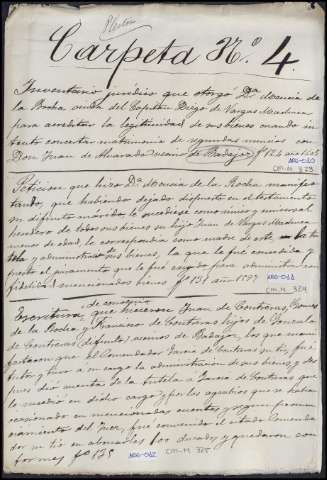 Carpeta N.º 4.
Inventario jurídico que otorgó D.ª Mencia de
la Rocha viuda del Capitan Diego de Vargas Machuca
para acreditar la legitimidad de sus bienes cuando in-
tentó concertar matrimonio de segundas nuncias con
Don Juan de Alvarado vecino de Badajoz fº 126
CM-M 323
Peticion que hizo D.ª Mencia de la Rocha manifes-
tando, que habiendo dejado dispuesto en el testamento
su difunto marido, le sucediese como unico y universal
heredero de todos sus bienes su hijo Juan de Vargas Machuca
menor de edad, le correspondia como madre de este, la tu-
tela y administracion de sus bienes, la que le fué concedida y
prestó el juramento que le fué exigido para administrar con
fidelidad mencionados bienes fº 131
CM-M 324
de concierto
Escritura, que hicieron Juan de Contreras, Gomez
de la Rocha y Francisco de Contreras hijos de Gonzalo
de Contreras difunto, vecinos de Badajoz, los que
que el Comendador Garcia de Contreras su tio, que
tubo á su cargo la administracion de sus bienes, y des-
pues dió cuenta de la tutela á Garcia de Contreras que
le sucedió en dicho cargo y por los agravios que se habian
ocasionado en mencionadas cuentas y
del Juez, fué convenido el citado Comenda-
dor su tio en abonarles 100 ducados y quedaron con-
formes fº 135
CM-M 325